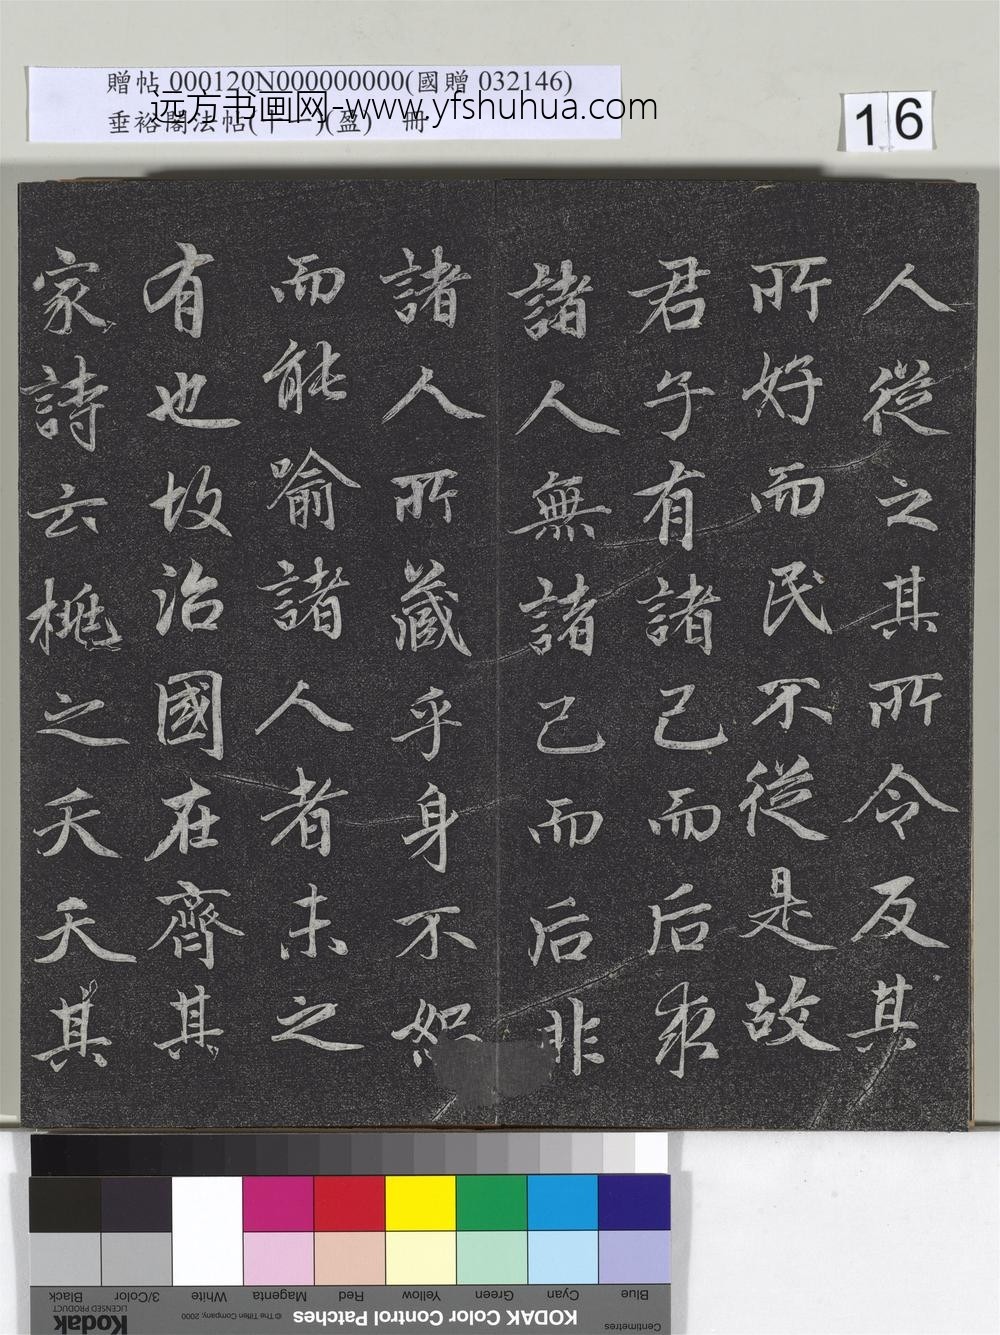 贈帖 000120N000000000(國贈 032146)
远方书画网-www.yfshuhua.com
垂裕閣法帖(十一)(盈) 冊
16
人從之其所令反其
所好而民不從是故
君子有諸己而后求
諸人無諸己而后非
諸人所藏乎身不恕
而能喻諸人者未之
有也故治國在齊其
家詩云桃之夭夭其
Black
3/Color
White
Magenta
Red
Yellow
Green
Cyan
Blue
Kodak
LICENSED PRODUCT
© The Tiffen Company, 2000
KODAK Color Control Patches
Centimetres